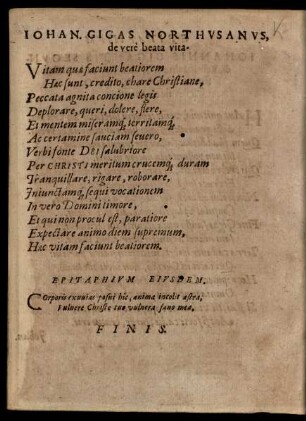 IOHAN. GIGAS NORTHVSANVS,
de verè beata vita.
Vitam quæ faciunt beatiorem
Hæc sunt, credito, chare Christiane,
Peccata agnita concione legis
Deplorare, queri, dolere, flere,
Et mentem miseramq́, territamq́,
Ac certamine sauciam seuero,
Verbi fonte DEI salubriore
Per CHRISTI meritum crucemq́, duram
Tranquillare, rigare, roborare,
Iniunctamq́, sequi vocationem
In vero Domini timore,
Et qui non procul est, paratiore
Expectare animo diem supremum,
Hæc vitam faciunt beatiorem.
EPITAPHIVM EIVSDEM.
Corporis exuuias posui hic, anima incolit astra,
Vulnere Christe tuo vulnera sana mea.
FINIS.